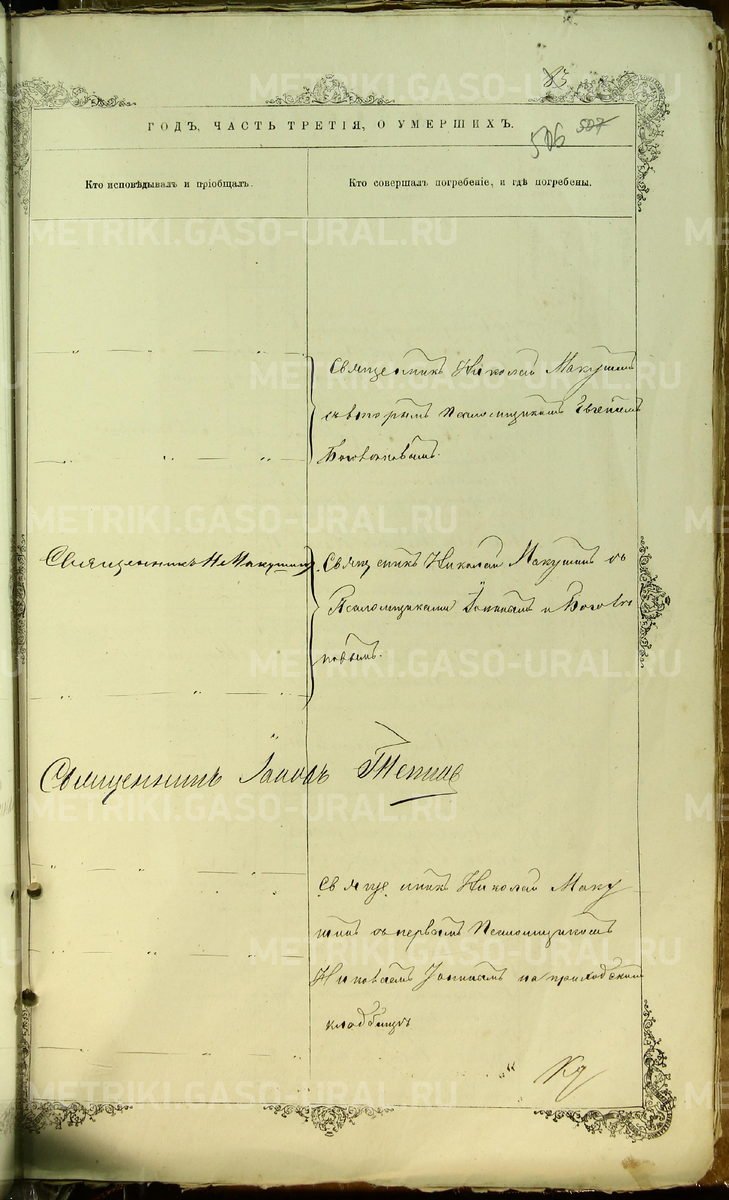 83
ГОДЪ, ЧАСТЬ ТРЕТІЯ, О УМЕРШИХЪ.
506 507
Кто исповѣдывалъ и пріобщалъ.
Кто совершалъ погребеніе, и гдѣ погребены.
Священникъ Николай Макушинъ
съ вторымъ Псаломщикомъ Евгеніемъ
Священникъ Н. Макушинъ
Священникъ Николай Макушинъ съ
Псаломщиками и
Священникъ
Священникъ Николай Маку
шинъ съ первымъ Псаломщикомъ
на приходскомъ
кладбищѣ
METRIKI.GASO-URAL.RU